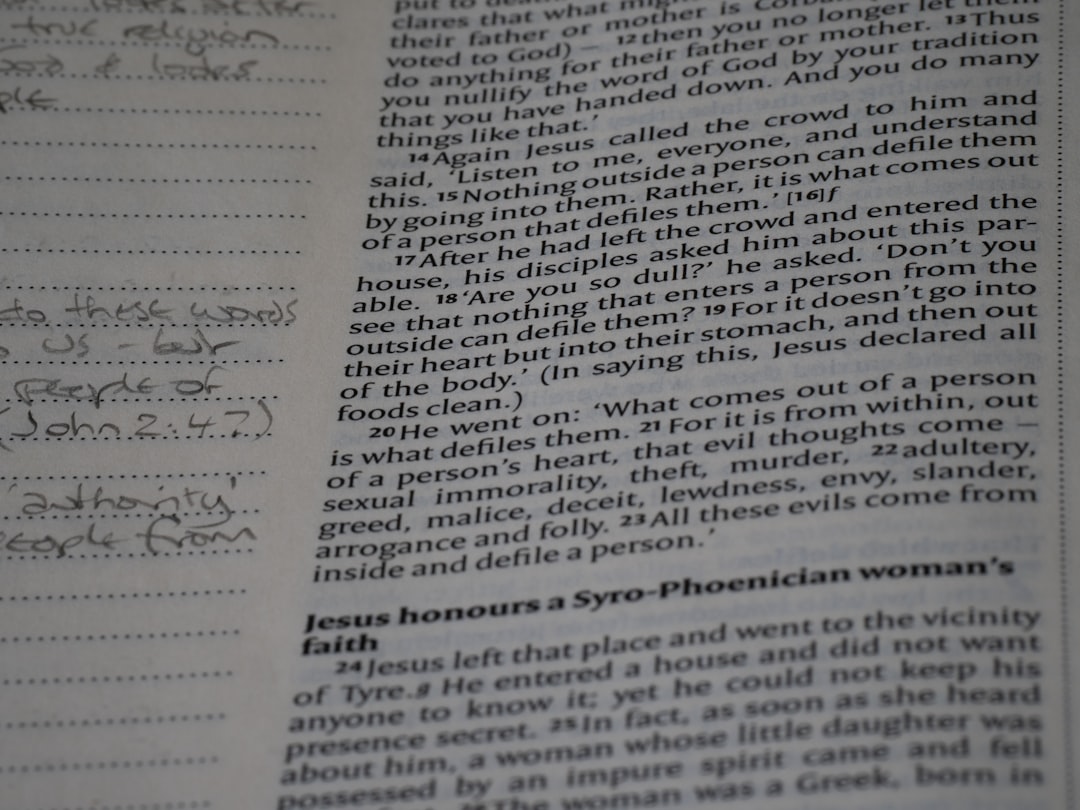 true religion
& looks
to these words
us - but
people of
(John 2:47)
'authority'
people from
put to death
clares that what
their father or mother is Corban
voted to God) – 12 then you no longer let them
do anything for their father or mother. 13 Thus
you nullify the word of God by your tradition
that you have handed down. And you do many
things like that.'
14 Again Jesus called the crowd to him and
said, 'Listen to me, everyone, and understand
this. 15 Nothing outside a person can defile them
by going into them. Rather, it is what comes out
of a person that defiles them.' [16] f
17 After he had left the crowd and entered the
house, his disciples asked him about this par-
able. 18 'Are you so dull?' he asked. 'Don't you
see that nothing that enters a person from the
outside can defile them? 19 For it doesn't go into
their heart but into their stomach, and then out
of the body.' (In saying this, Jesus declared all
foods clean.)
20 He went on: 'What comes out of a person
is what defiles them. 21 For it is from within, out
of a person's heart, that evil thoughts come –
sexual immorality, theft, murder, 22 adultery,
greed, malice, deceit, lewdness, envy, slander,
arrogance and folly. 23 All these evils come from
inside and defile a person.'
Jesus honours a Syro-Phoenician woman's
faith
24 Jesus left that place and went to the vicinity
of Tyre. g He entered a house and did not want
anyone to know it; yet he could not keep his
presence secret. 25 In fact, as soon as she heard
about him, a woman whose little daughter was
possessed by an impure spirit came and fell
The woman was a Greek, born in